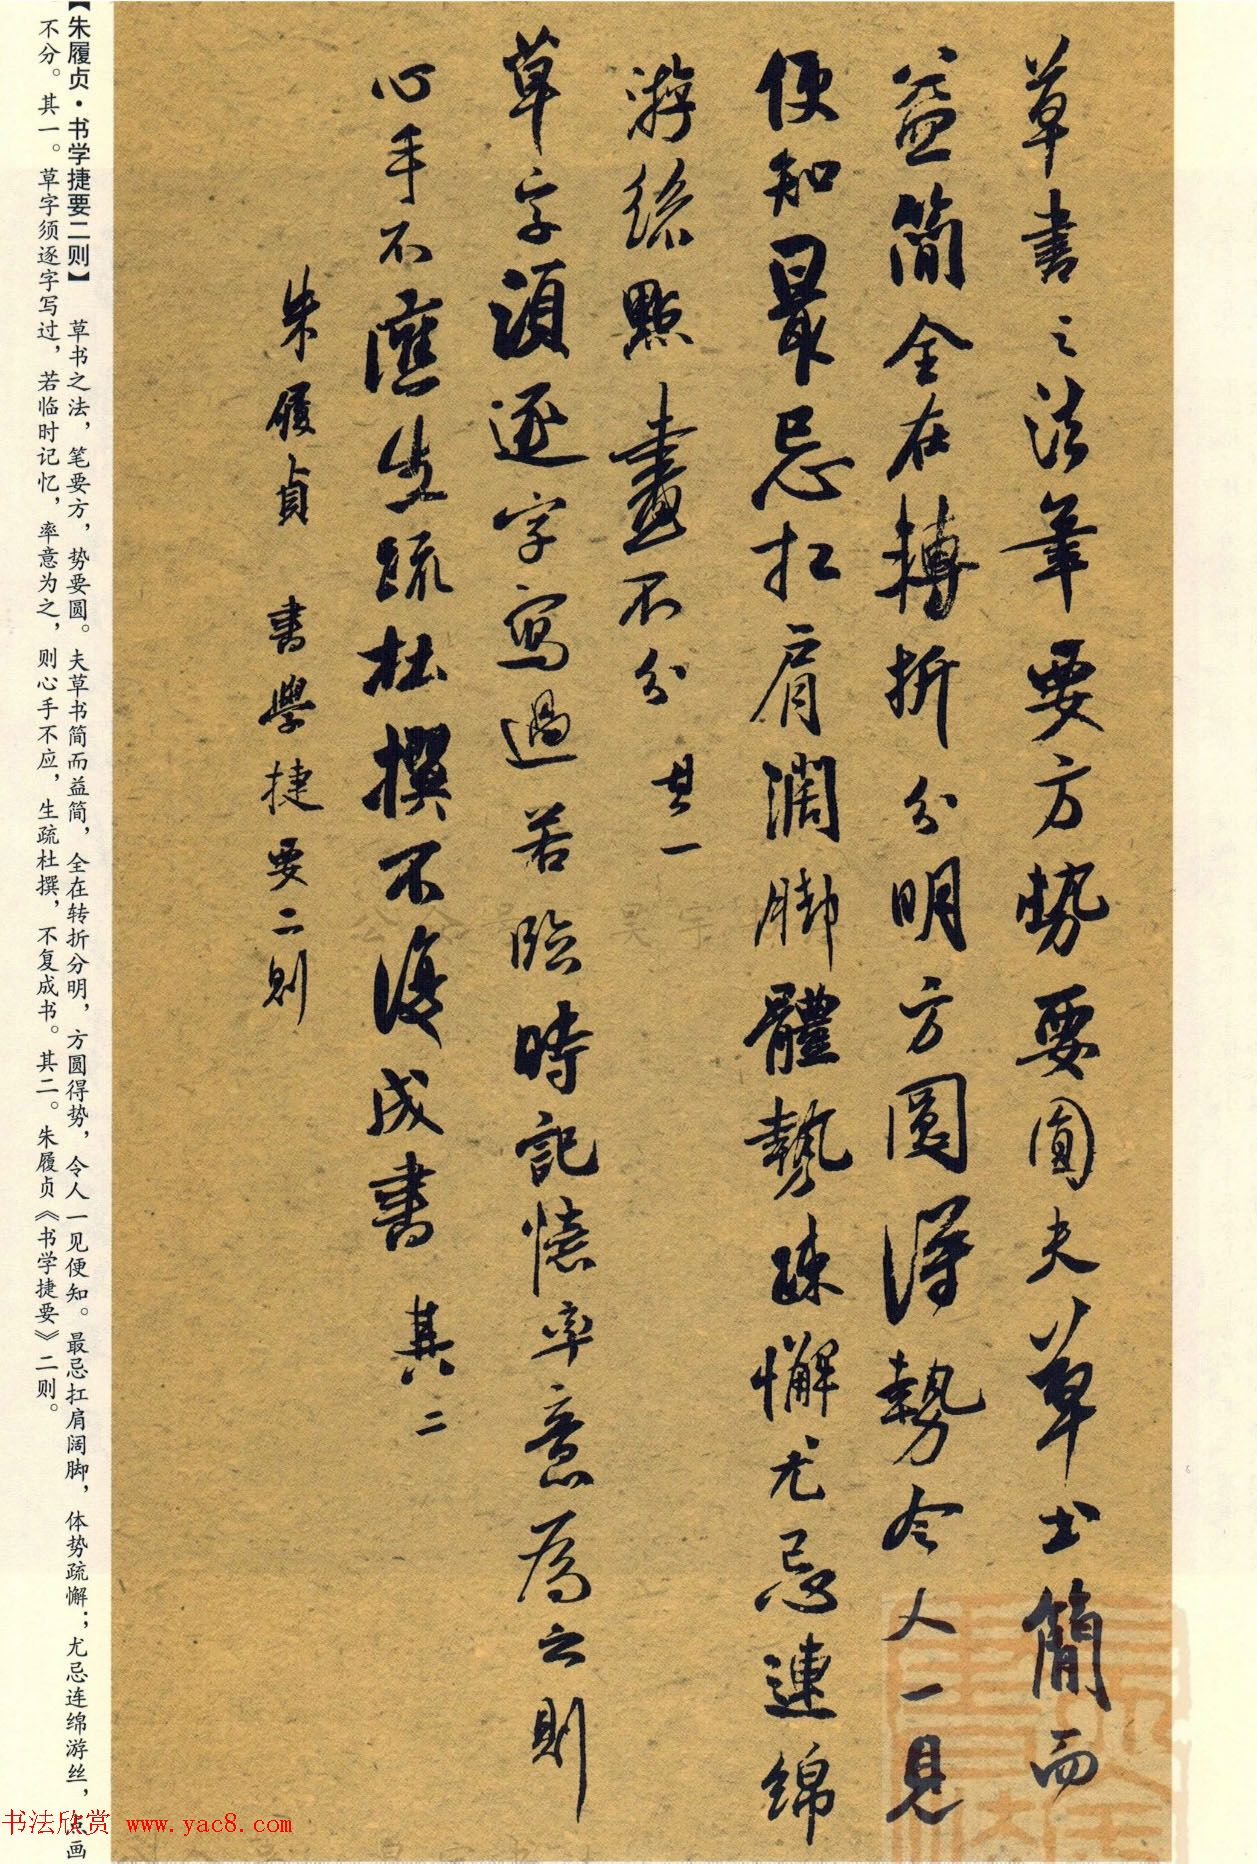 草書之法筆要方势要圓夫草书簡而
益简全在轉折分明方圓得勢令人一見
便知最忌扛肩濶脚體勢疎懈尤忌連綿
游絲點畫不分 其一
草字須逐字寫過若臨時記憶率意為之則
心手不應生疏杜撰不復成書 其二
朱履貞 書學捷要二則
【朱履贞·书学捷要二则】 草书之法，笔要方，势要圆。夫草书简而益简，全在转折分明，方圆得势，令人一见便知。最忌扛肩阔脚，体势疏懈；尤忌连绵游丝，点画
不分。其一。草字须逐字写过，若临时记忆，率意为之，则心手不应，生疏杜撰，不复成书。其二。朱履贞《书学捷要》二则。
书法欣赏 www.yac8.com